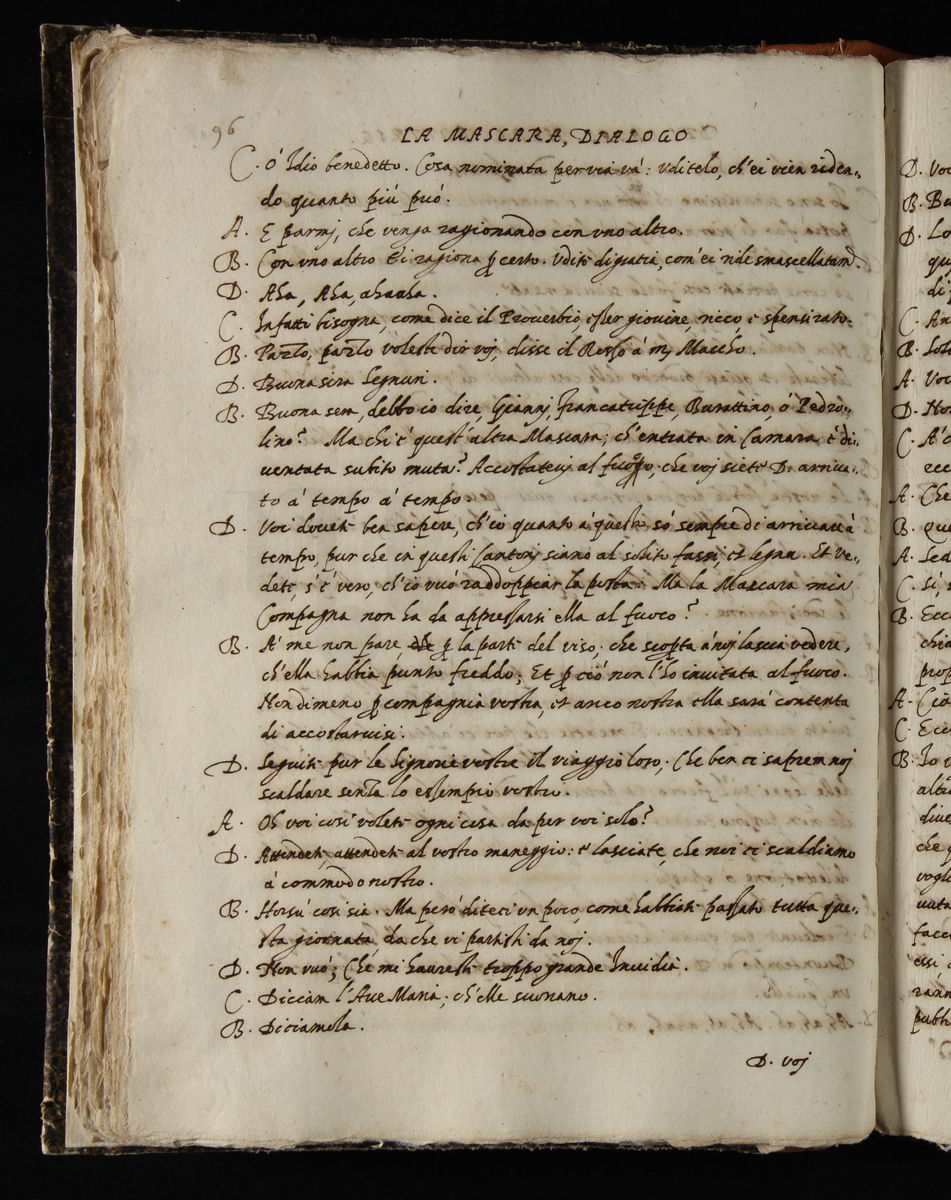 96
LA MASCARA, DIALOGO
C. ó Idio benedetto. Cosa nominata per via vá: Vditelo, ch'ei vien riden-
do quanto piú puó.
A. E parmj, che venga ragionando con vno altro.
B. Con vno altro Ei ragiona ꝑ certo. Vdite di gratia, com'ei ride smascellatam.
D. Aha, Aha, ahaaha.
C. Infatti bisogna, come dice il Proverbio, esser giovine, ricco, e spensirato.
B. Pazzo, pazzo voleste dir voj, disse il Rosso á m Maccho.
D. Buona sera Segnuri.
B. Buona sera, debbo io dire, Giannj, francatrippe, Burattino ó Pedro-
lino? Ma chi é quest'altra Mascara; ch'entrata in Camara é di-
uentata subito muta? Accostateuj al fuoco, che voj siete D. arriua-
to á tempo á tempo
D. Voi douete ben sapere, ch'io quanto á questo só sempre di arriuare á
tempo, pur che in questi Cantonj siano al solito fassi, et legna. Et ve-
dete, s'é vero, ch'io vuó raddoppiar la posta. Ma la Mascara mia
Compagna non ha da appressarsi ella al fuoco?
B. A' me non pare, ꝑ la parte del viso, che scopta á noj lascia vedere,
ch'ella habbia punto freddo; Et ꝑ ció non l'ho inuitata al fuoco.
Nondimeno ꝑ compagnia vostra, et anco nostra ella sará contenta
di accostaruisi.
D. Seguite pur le Signorie vostre il viaggio loro; Che ben ci saprem noj
scaldare senza lo essempio vostro.
A. Oh voi cosí volete ogni cosa da per voi solo?
D. Attendete, attendete al vostro maneggio: e lasciate, che noi ci scaldiamo
á commodo nostro.
B. Horsú cosí sia. Ma peró diteci vn poco, come habbiate passato tutta que-
sta giornata da che vi partisti da noj.
D. Non vuó; Ché mi haureste troppo grande Inuidia.
C. Diccian l'Aue Maria; ch'elle suonano.
B. Diciamola.
D. voj